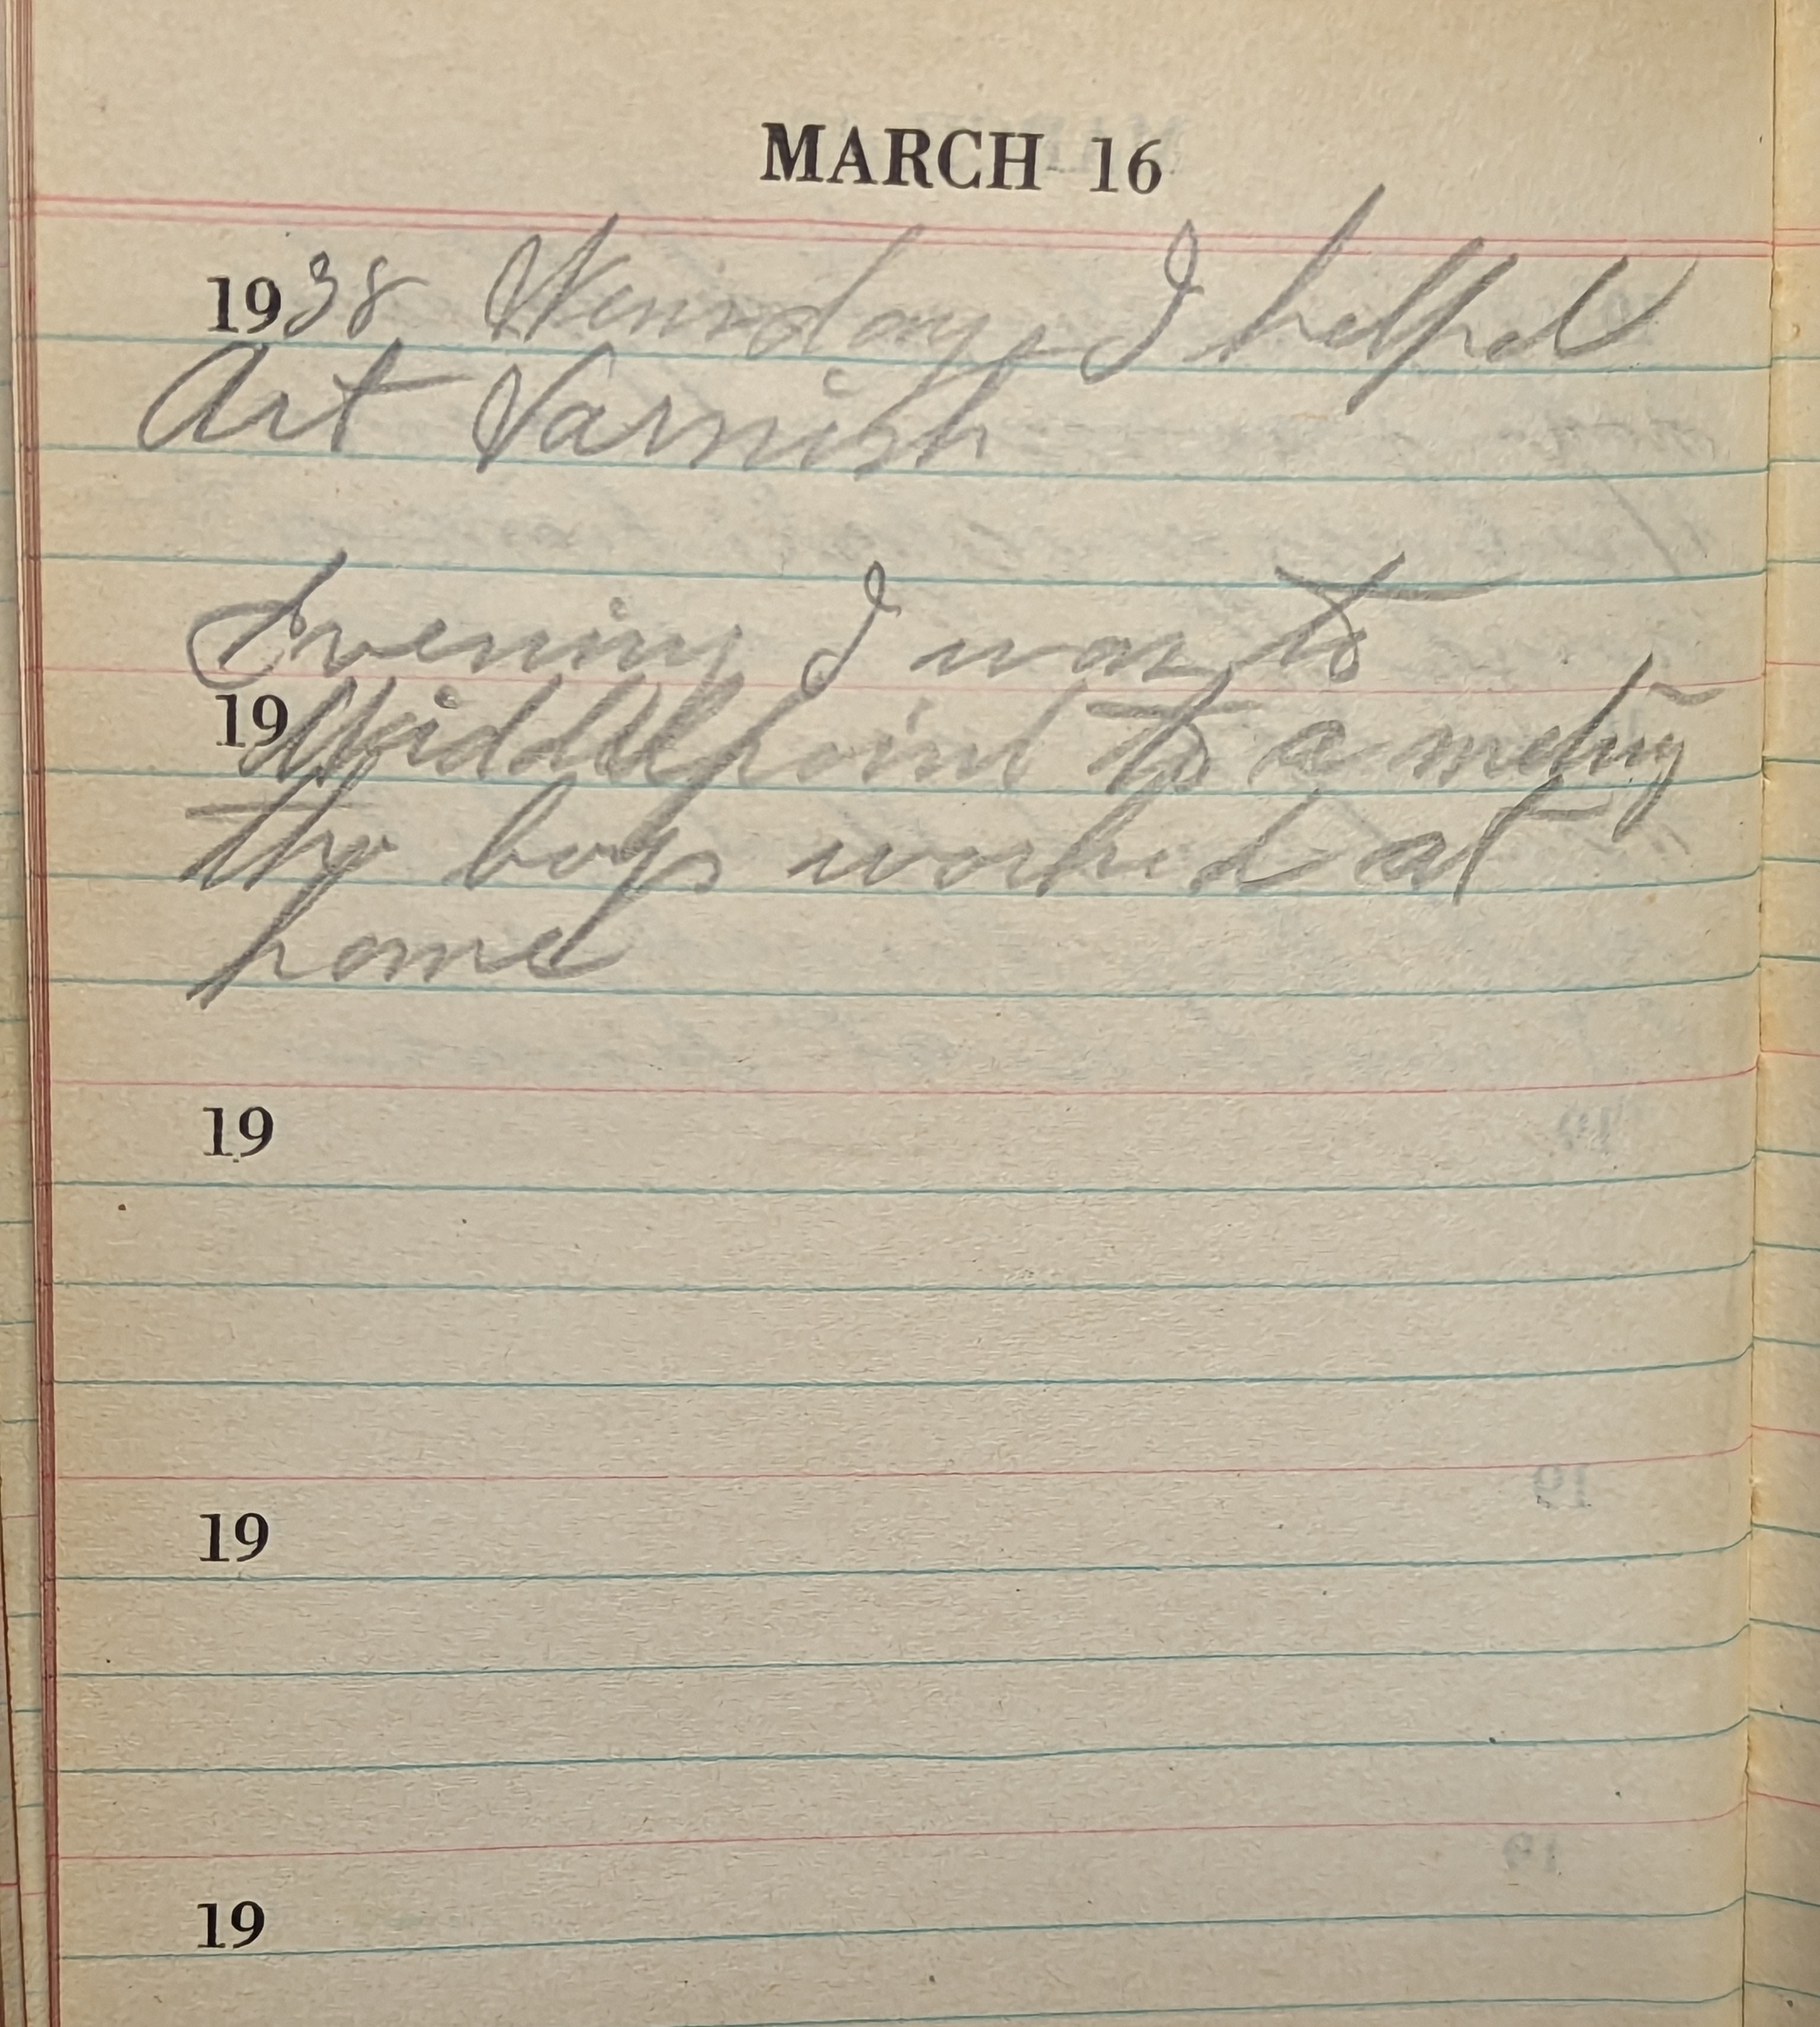 MARCH 16
1938 Wensday I helped
Art Varnish
Evening I was to
19 Middelpoint to a meting
the boys worked at
home
19
19
19